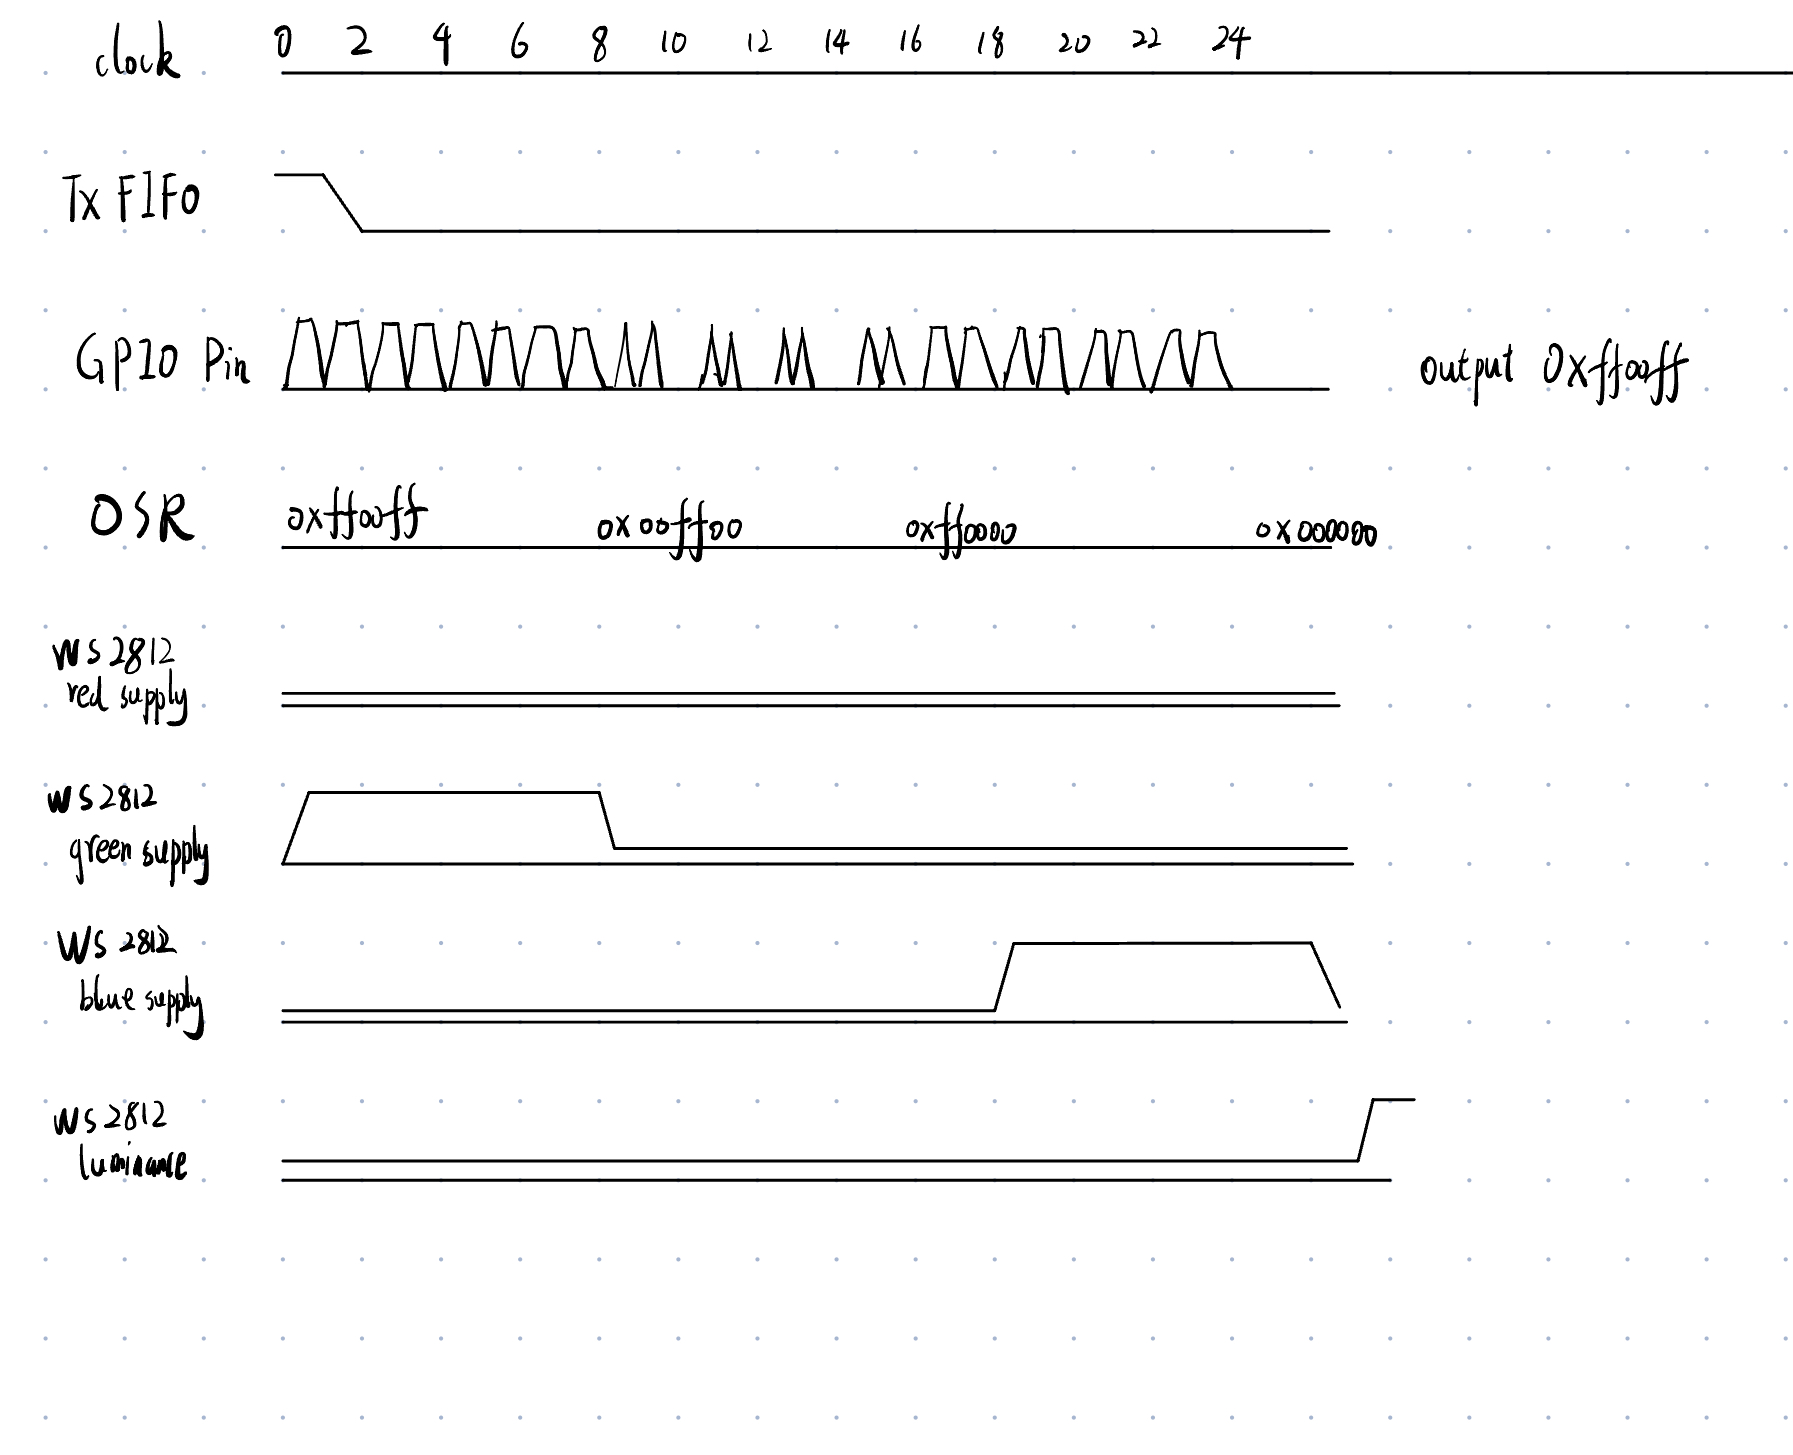 clock 0 2 4 6 8 10 12 14 16 18 20 22 24
Tx FIFO
GPIO Pin output 0xff00ff
OSR 0xff00ff 0x00ff00 0xff0000 0x000000
WS2812
red supply
WS2812
green supply
WS2812
blue supply
WS2812
luminance